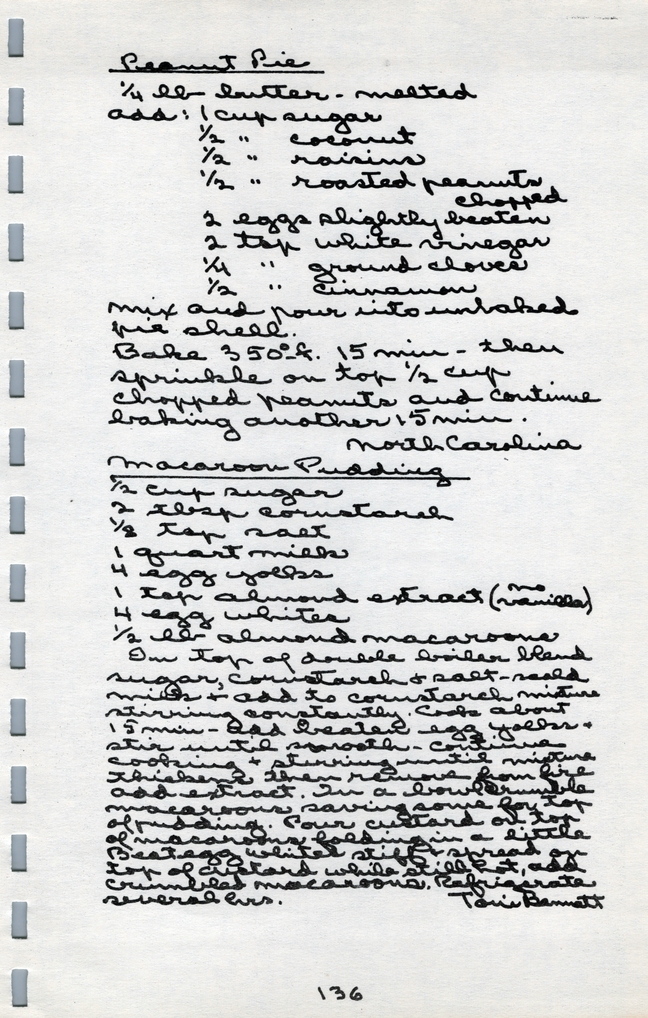 Peanut Pie
1/4 lb butter - melted
add: 1 cup sugar
1/2 " coconut
1/2 " raisins
1/2 " roasted peanuts
chopped
2 eggs slightly beaten
2 tsp white vinegar
1/4 " ground cloves
1/2 " cinnamon
mix and pour into unbaked
pie shell.
Bake 350° f. 15 min - then
sprinkle on top 1/2 cup
chopped peanuts and continue
baking another 15 min.
North Carolina
Macaroon Pudding
1/2 cup sugar
2 tbsp cornstarch
1/8 tsp salt
1 quart milk
4 egg yolks
1 tsp almond extract (no vanilla)
4 egg whites
1/2 lb almond macaroons
In top of double boiler blend
sugar, cornstarch & salt - scald
milk + add to cornstarch mixture
stirring constantly. Cook about
15 min - add beaten egg yolks +
stir until smooth - continue
cooking + stirring until mixture
thickens. Then remove from fire
add extract. In a bowl crumble
macaroons saving some for top
of pudding. Pour custard on top
of macaroons folding in a little
Beat egg whites stiff & spread on
top of custard while still hot, add
crumbled macaroons. Refrigerate
several hrs. Toni Bennett
136